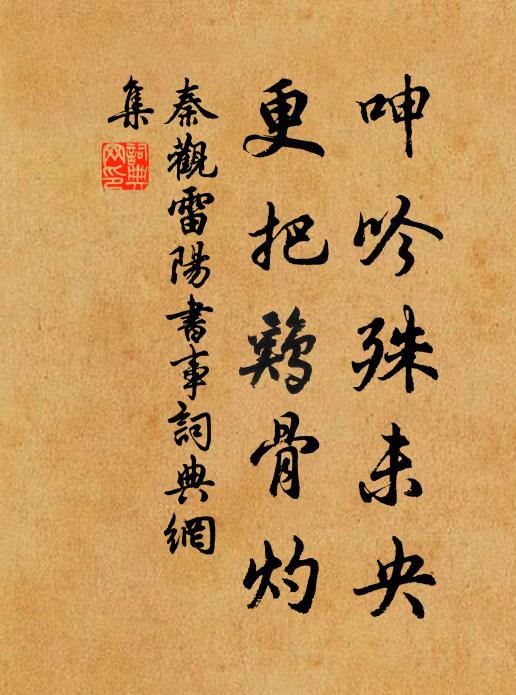 呻吟殊未央
更把鷄骨灼
秦觀雷陽書事詞典網
集
詞典網印